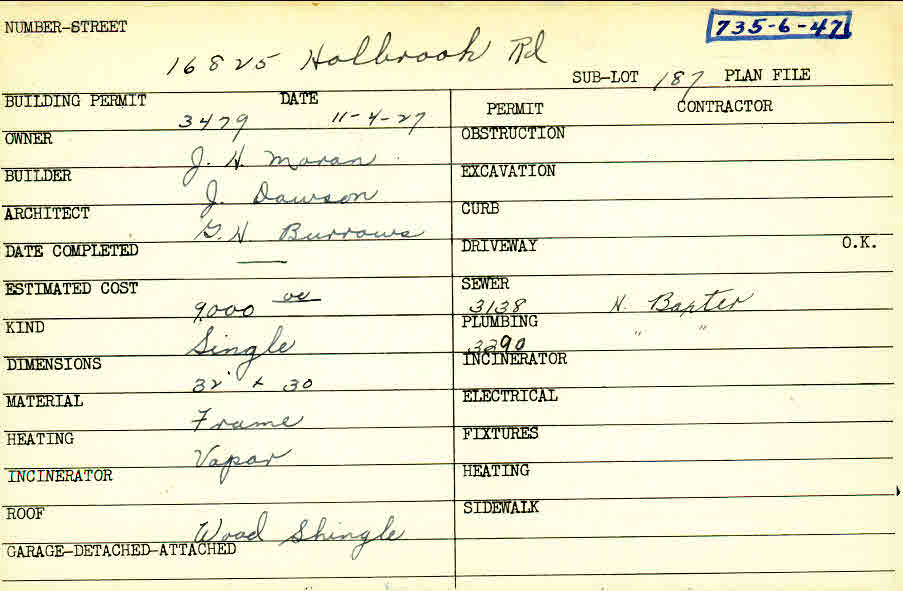 NUMBER-STREET
735-6-47
16825 Holbrook Rd
SUB-LOT 187 PLAN FILE
BUILDING PERMIT DATE
3479 11-4-27
OWNER
J. H. Moran
BUILDER
J. Dawson
ARCHITECT
G. H. Burrows
DATE COMPLETED
—
ESTIMATED COST
9,000 00
KIND
Single
DIMENSIONS
32' x 30
MATERIAL
Frame
HEATING
Vapor
INCINERATOR
ROOF
Wood Shingle
GARAGE-DETACHED-ATTACHED
PERMIT CONTRACTOR
OBSTRUCTION
EXCAVATION
CURB
DRIVEWAY O.K.
SEWER
3138 H. Baxter
PLUMBING
3290 " "
INCINERATOR
ELECTRICAL
FIXTURES
HEATING
SIDEWALK